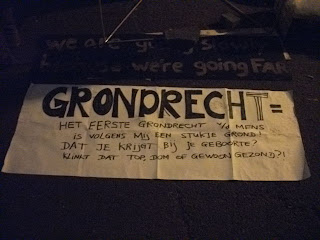 we are going slow
we're going FAR
GRONDRECHT=
HET EERSTE GRONDRECHT V/D MENS
IS VOLGENS MIJ EEN STUKJE GROND!
DAT JE KRIJGT BIJ JE GEBOORTE?
KLINKT DAT TOP, DOM OF GEWOON GEZOND?!